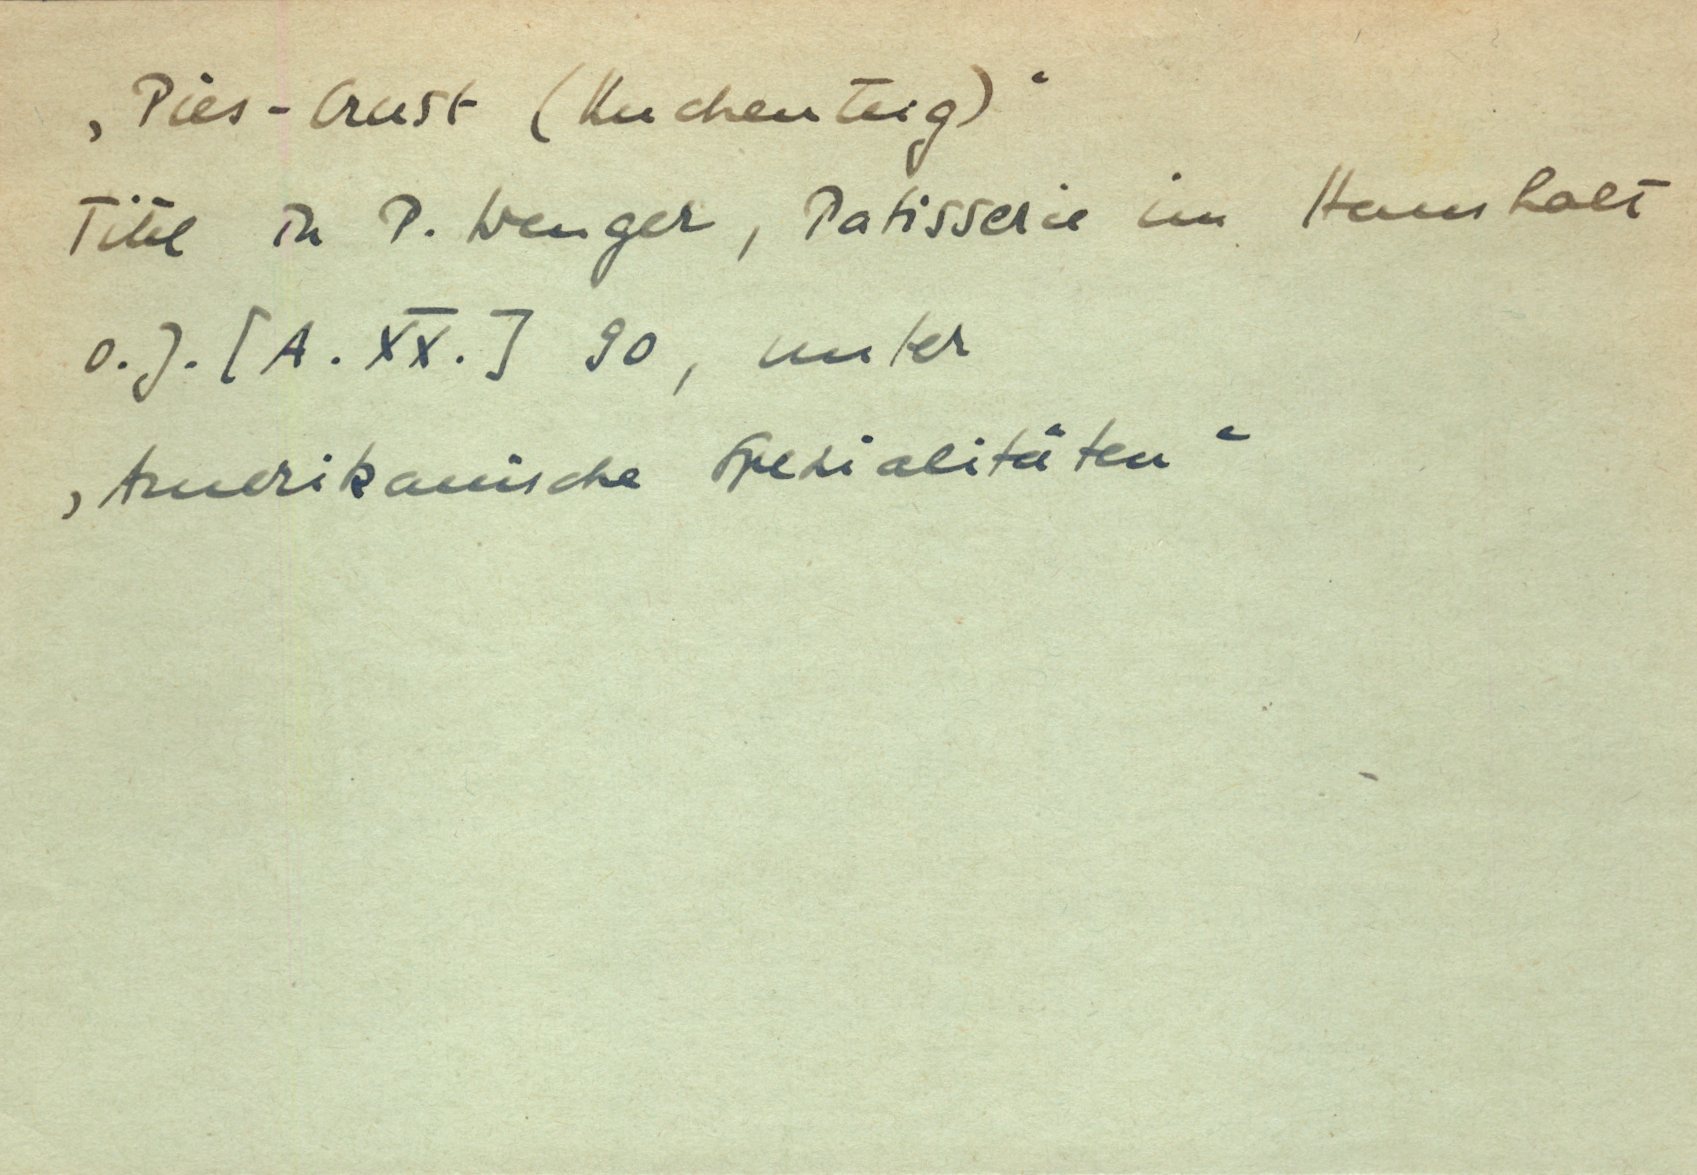 „Pies-Crust (Kuchenteig)“
Titel in P. Wenger, Patisserie im Haushalt
o.J. [A. XX.] 90, unter
„Amerikanische Spezialitäten“